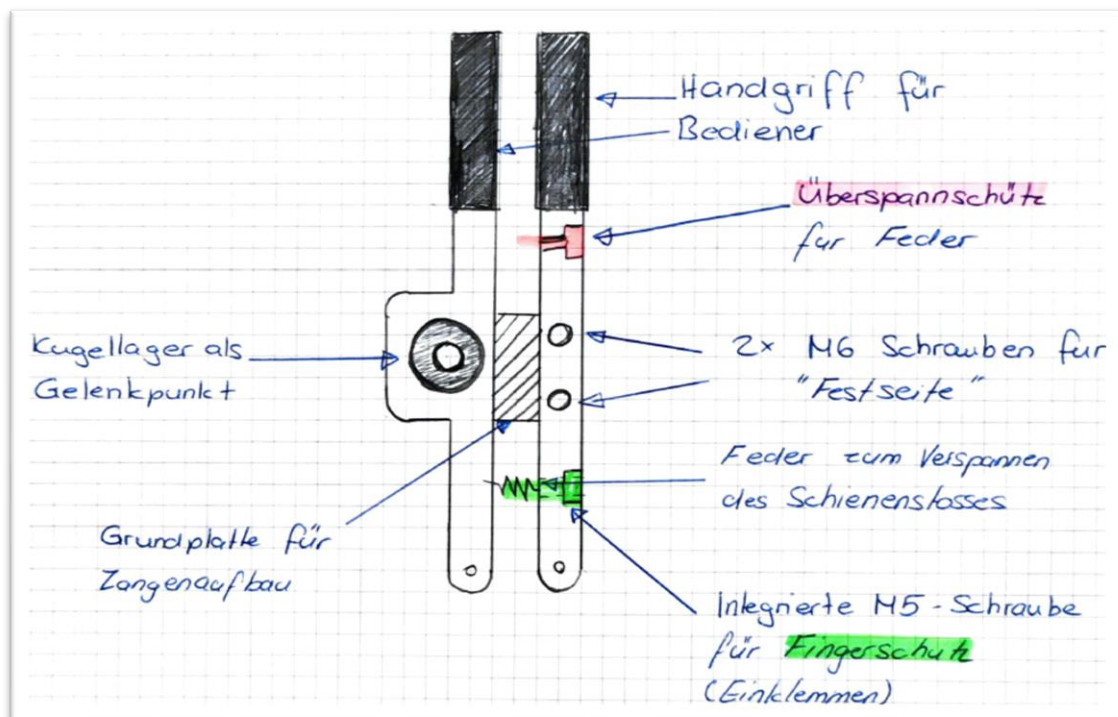 Handgriff für
Bediener
Überspannschütz
für Feder
Kugellager als
Gelenkpunkt
2x M6 Schrauben für
"Festseite"
Feder zum Verspannen
des Schienenstosses
Grundplatte für
Zangenaufbau
Integrierte M5-Schraube
für Fingerschutz
(Einklemmen)